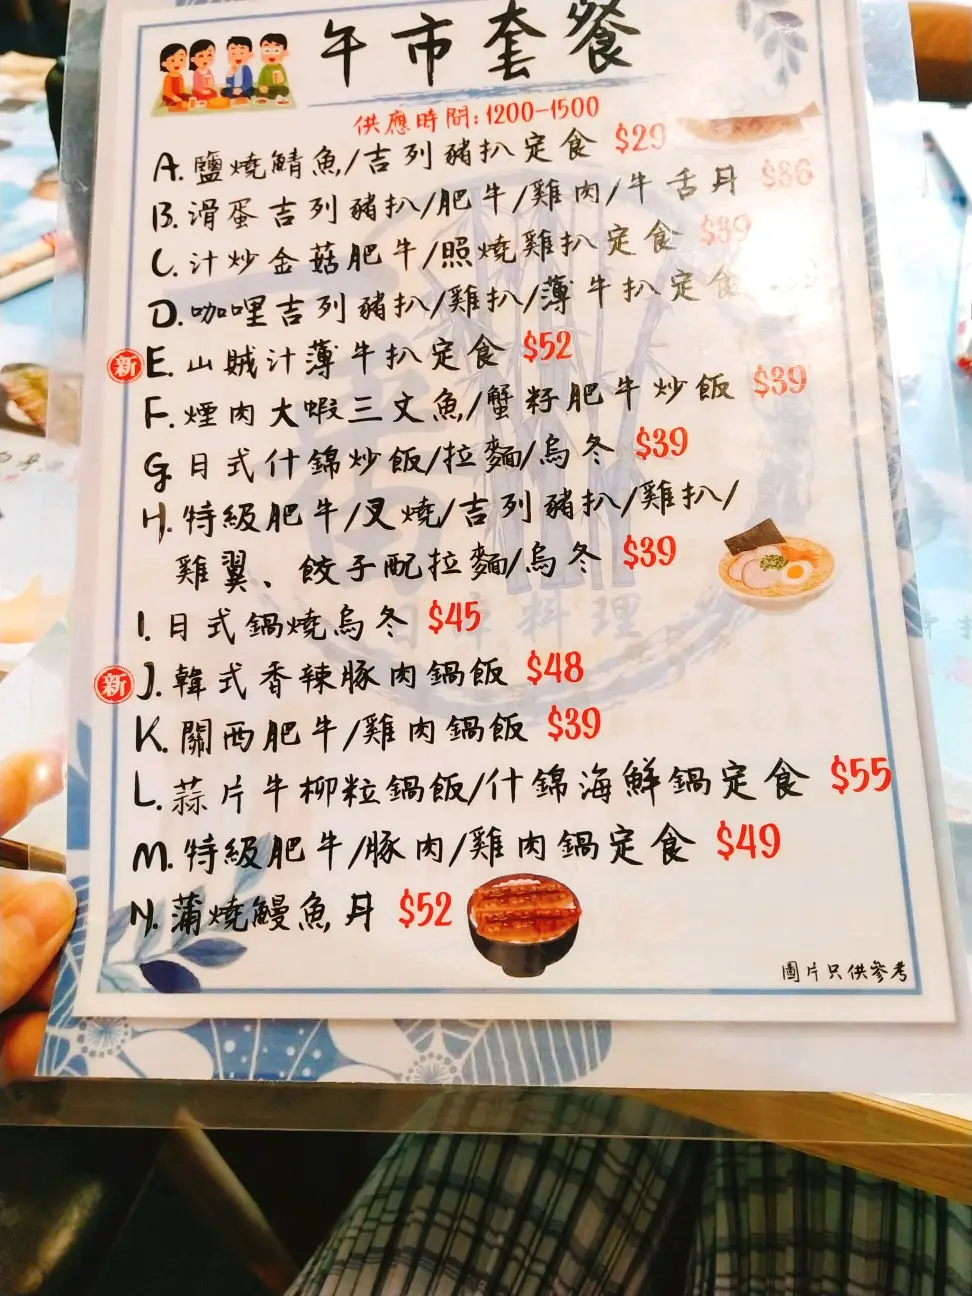 午市套餐
供應時間:1200-1500
A.鹽燒鯖魚/吉列豬扒定食 $29
B.滑蛋吉列豬扒/肥牛/雞肉/牛舌丼 $36
C.汁炒金菇肥牛/照燒雞扒定食 $39
D.咖哩吉列豬扒/雞扒/薄牛扒定食
新 E.山賊汁薄牛扒定食 $52
F.煙肉大蝦三文魚/蟹籽肥牛炒飯 $39
G.日式什錦炒飯/拉麵/烏冬 $39
H.特級肥牛/叉燒/吉列豬扒/雞扒/
雞翼、餃子配拉麵/烏冬 $39
I.日式鍋燒烏冬 $45
新 J.韓式香辣豚肉鍋飯 $48
K.關西肥牛/雞肉鍋飯 $39
L.蒜片牛柳粒鍋飯/什錦海鮮鍋定食 $55
M.特級肥牛/豚肉/雞肉鍋定食 $49
N.蒲燒鰻魚丼 $52
圖片只供參考